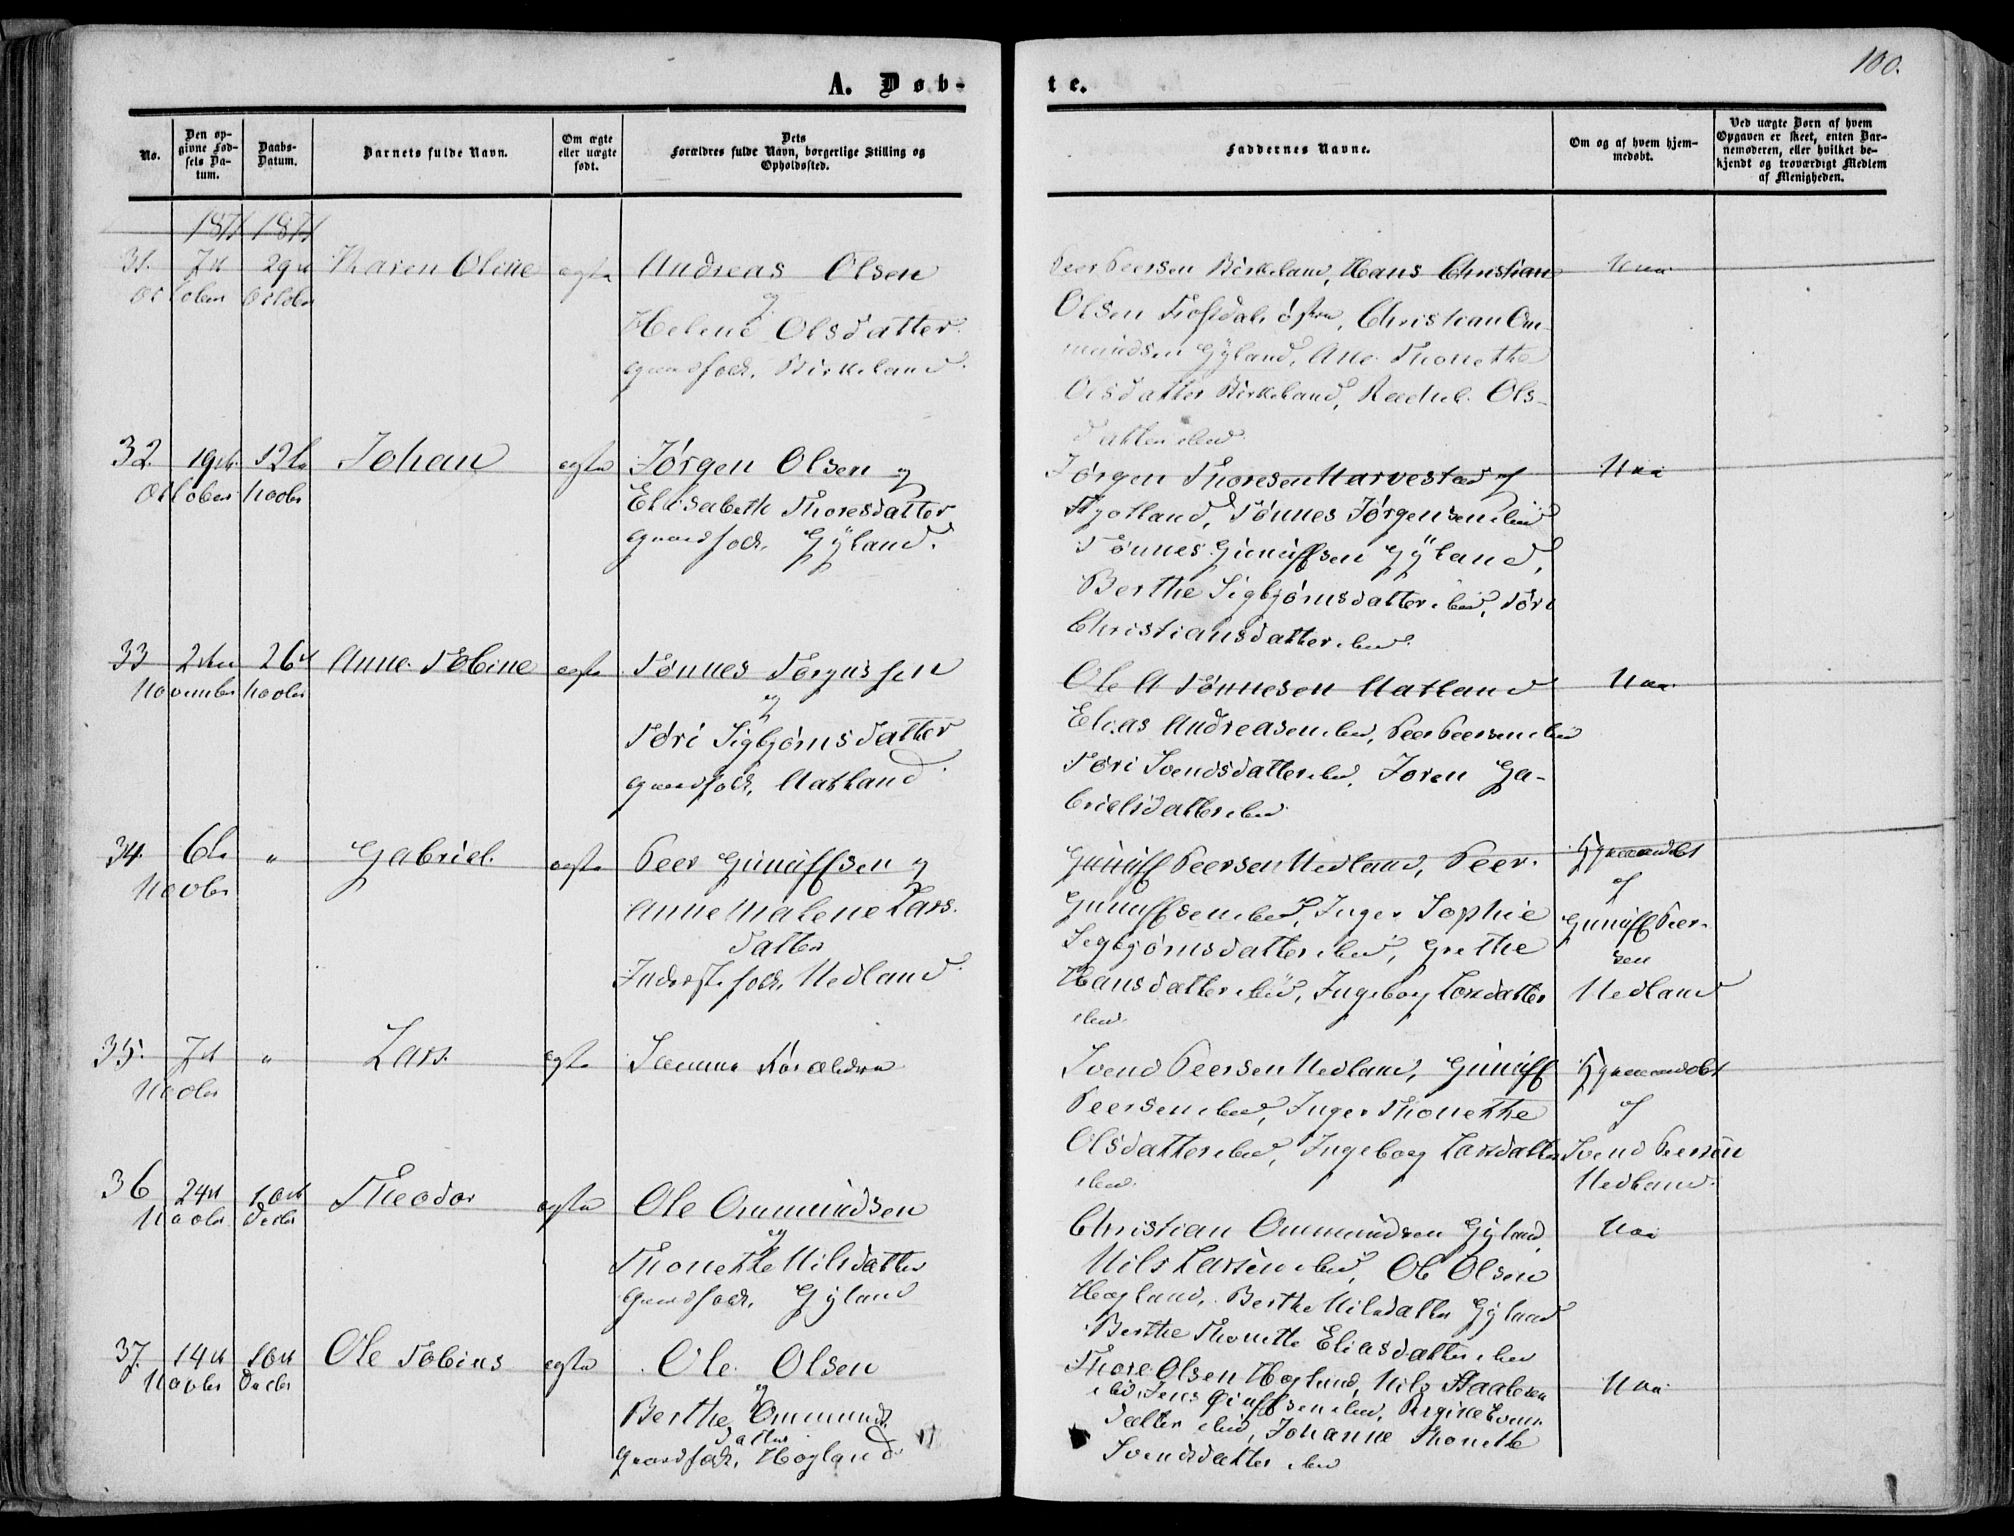 100.
A. Døb-
te.
No.
Den op-
givne Fød-
sels Da-
tum.
Daabs-
Datum.
Barnets fulde Navn.
Om ægte
eller uægte
født.
Dets
Forældres fulde Navn, borgerlige Stilling og
Opholdssted.
Faddernes Navne.
Om og af hvem hjem-
medøbt.
Ved uægte Børn af hvem
Opgaven er skeet, enten Bar-
nemoderen, eller hvilket be-
kjendt og troværdigt Medlem
af Menigheden.
1871 1871
31. 7de 29de Karen Oline ægte Andreas Olsen
October October og
Helene Olsdatter
gaardfolk, Birkeland.
Peer Peersen Birkeland, Hans Christian
Olsen østre, Christian Om-
mundsen Gÿland, Ane Thonethe
Olsdatter Birkeland, Rachel Ols-
datter ibid
Nei
32. 19de 12te Johan ægte Jørgen Olsen og
October Novbr Elisabeth Thoresdatter
gaardfolk, Gÿland.
Jørgen Thoresen Narvestad af
Fjotland, Tønnes Jørgensen ibid
Tønnes Gunüffsen Gÿland,
Berthe Sigbjørnsdatter ibid, Tøri
Christiansdatter ibid.
Nei
33 2den 26de Anne Tobine ægte Tønnes Torgussen
November Novbr og
Tøri Sigbjørnsdatter
gaardfolk, Natland.
Ole A Tønnesen Natland
Elias Andreasen ibid, Peer Peersen ibid
Tøri Svendsdatter ibid, Joren Ga-
brielsdatter ibid
Nei
34. 6te " Gabriel. ægte Peer Gunüffsen og
Novbr Anne Malene Lars-
datter
Inderstefolk, Nedland.
Gunüff Peersen Nedland, Peer
Gunüffsen ibid, Inger Sophie
Sigbjørnsdatter ibid, Grethe
Hansdatter ibid, Ingeborg Larsdatter
ibid.
Hjemmedøbt
af
Gunüff Peer-
sen
Nedland
35. 7de " Lars. ægte Samme Forældre
Novbr
Svend Peersen Nedland, Gunüff
Peersen ibid, Inger Thonethe
Olsdatter ibid, Ingeborg Larsdatter
ibid.
Hjemmedøbt
af
Svend Peersen
Nedland.
36 24de 10de Theodor ægte Ole Ommundsen
Novbr Decbr og
Thonethe Nilsdatter
Gaardfolk, Gÿland
Christian Ommundsen Gÿland,
Nils Larsen ibid, Ole Olsen
Høgland, Berthe Nilsdatter Gÿland
Berthe Thonette Eliasdatter ibid
Nei
37. 14de 10de Ole Tobias ægte Ole Olsen
Novbr Decbr og
Berthe Ommunds
datter
Gaardfolk, Høgland
Thore Olsen Høgland, Nils Staalesen
ibid, Jens ibid, Svens-
datter ibid, Johanne Thonethe
Svendsdatter ibid
Nei